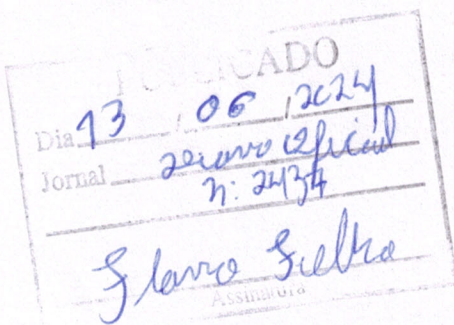 PUBLICADO
Dia 13 / 06 / 2024
Jornal Diario Oficial
N: 2434
Assinatura